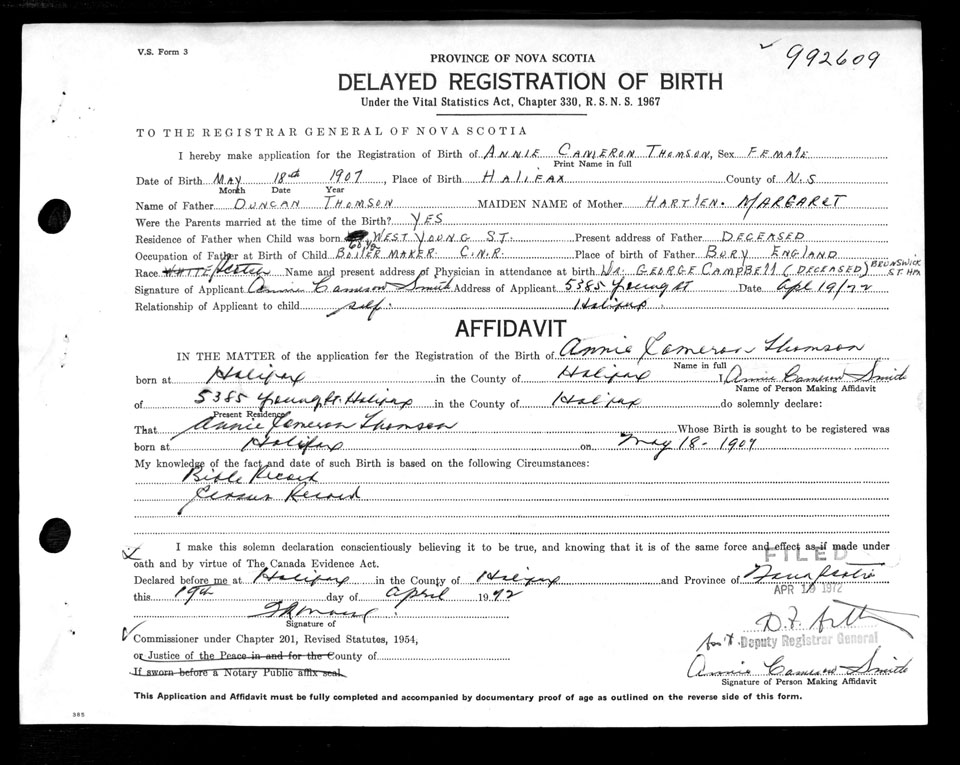 V.S. Form 3
992609
PROVINCE OF NOVA SCOTIA
DELAYED REGISTRATION OF BIRTH
Under the Vital Statistics Act, Chapter 330, R.S.N.S. 1967
TO THE REGISTRAR GENERAL OF NOVA SCOTIA
I hereby make application for the Registration of Birth of ANNIE CAMERON THOMSON, Sex FEMALE
Print Name in full
Date of Birth MAY 18th 1907, Place of Birth HALIFAX County of N.S
Month Date Year
Name of Father DUNCAN THOMSON MAIDEN NAME of Mother HARTLEN. MARGARET
Were the Parents married at the time of the Birth? YES
Residence of Father when Child was born 60 1/2 WEST YOUNG ST. Present address of Father DECEASED
Occupation of Father at Birth of Child BOILER MAKER. C.N.R. Place of birth of Father BURY ENGLAND
Race WHITE Name and present address of Physician in attendance at birth DR. GEORGE CAMPBELL (DECEASED) BRUNSWICK ST. HFX
Signature of Applicant Annie Cameron Smith Address of Applicant 5385 Young St Date Apl 19/72
Relationship of Applicant to child self. Halifax
AFFIDAVIT
IN THE MATTER of the application for the Registration of the Birth of Annie Cameron Thomson
Name in full
born at Halifax in the County of Halifax I Annie Cameron Smith
Name of Person Making Affidavit
of 5385 Young St. Halifax in the County of Halifax do solemnly declare:
Present Residence
That Annie Cameron Thomson Whose Birth is sought to be registered was
born at Halifax on May 18 - 1907
My knowledge of the fact and date of such Birth is based on the following Circumstances:
Bible Record
Census Record
I make this solemn declaration conscientiously believing it to be true, and knowing that it is of the same force and effect as if made under
FILED
oath and by virtue of The Canada Evidence Act.
Declared before me at Halifax in the County of Halifax and Province of Nova Scotia
APR 19 1972
this 19th day of April 1972
Signature of
D.F.
Commissioner under Chapter 201, Revised Statutes, 1954,
Deputy Registrar General
or Justice of the Peace in and for the County of
Annie Cameron Smith
If sworn before a Notary Public affix seal.
Signature of Person Making Affidavit
This Application and Affidavit must be fully completed and accompanied by documentary proof of age as outlined on the reverse side of this form.
385